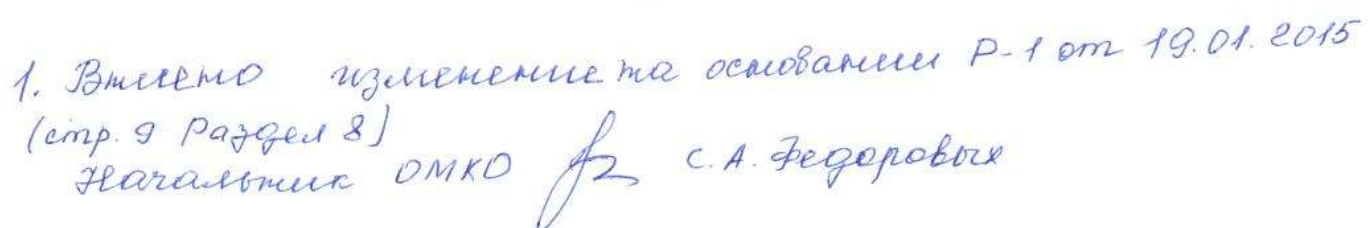 1. Внесено изменение на основании Р-1 от 19.01.2015
(стр. 9 Раздел 8)
Начальник ОМКО С.А. Федоровых